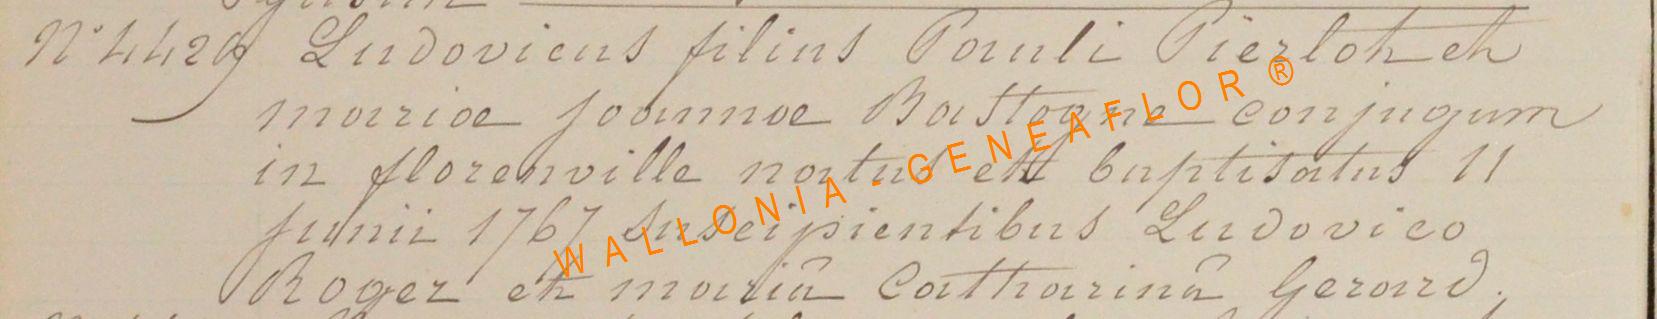 N° 4429 Ludovicus filius Pauli Pierlot et
mariae joannae Bastogne conjugum
in florenville natus et baptisatus 11
junii 1767 Suscipientibus Ludovico
Roger et mariâ Catharinâ Gerard.
WALLONIA-GENEAFLOR®